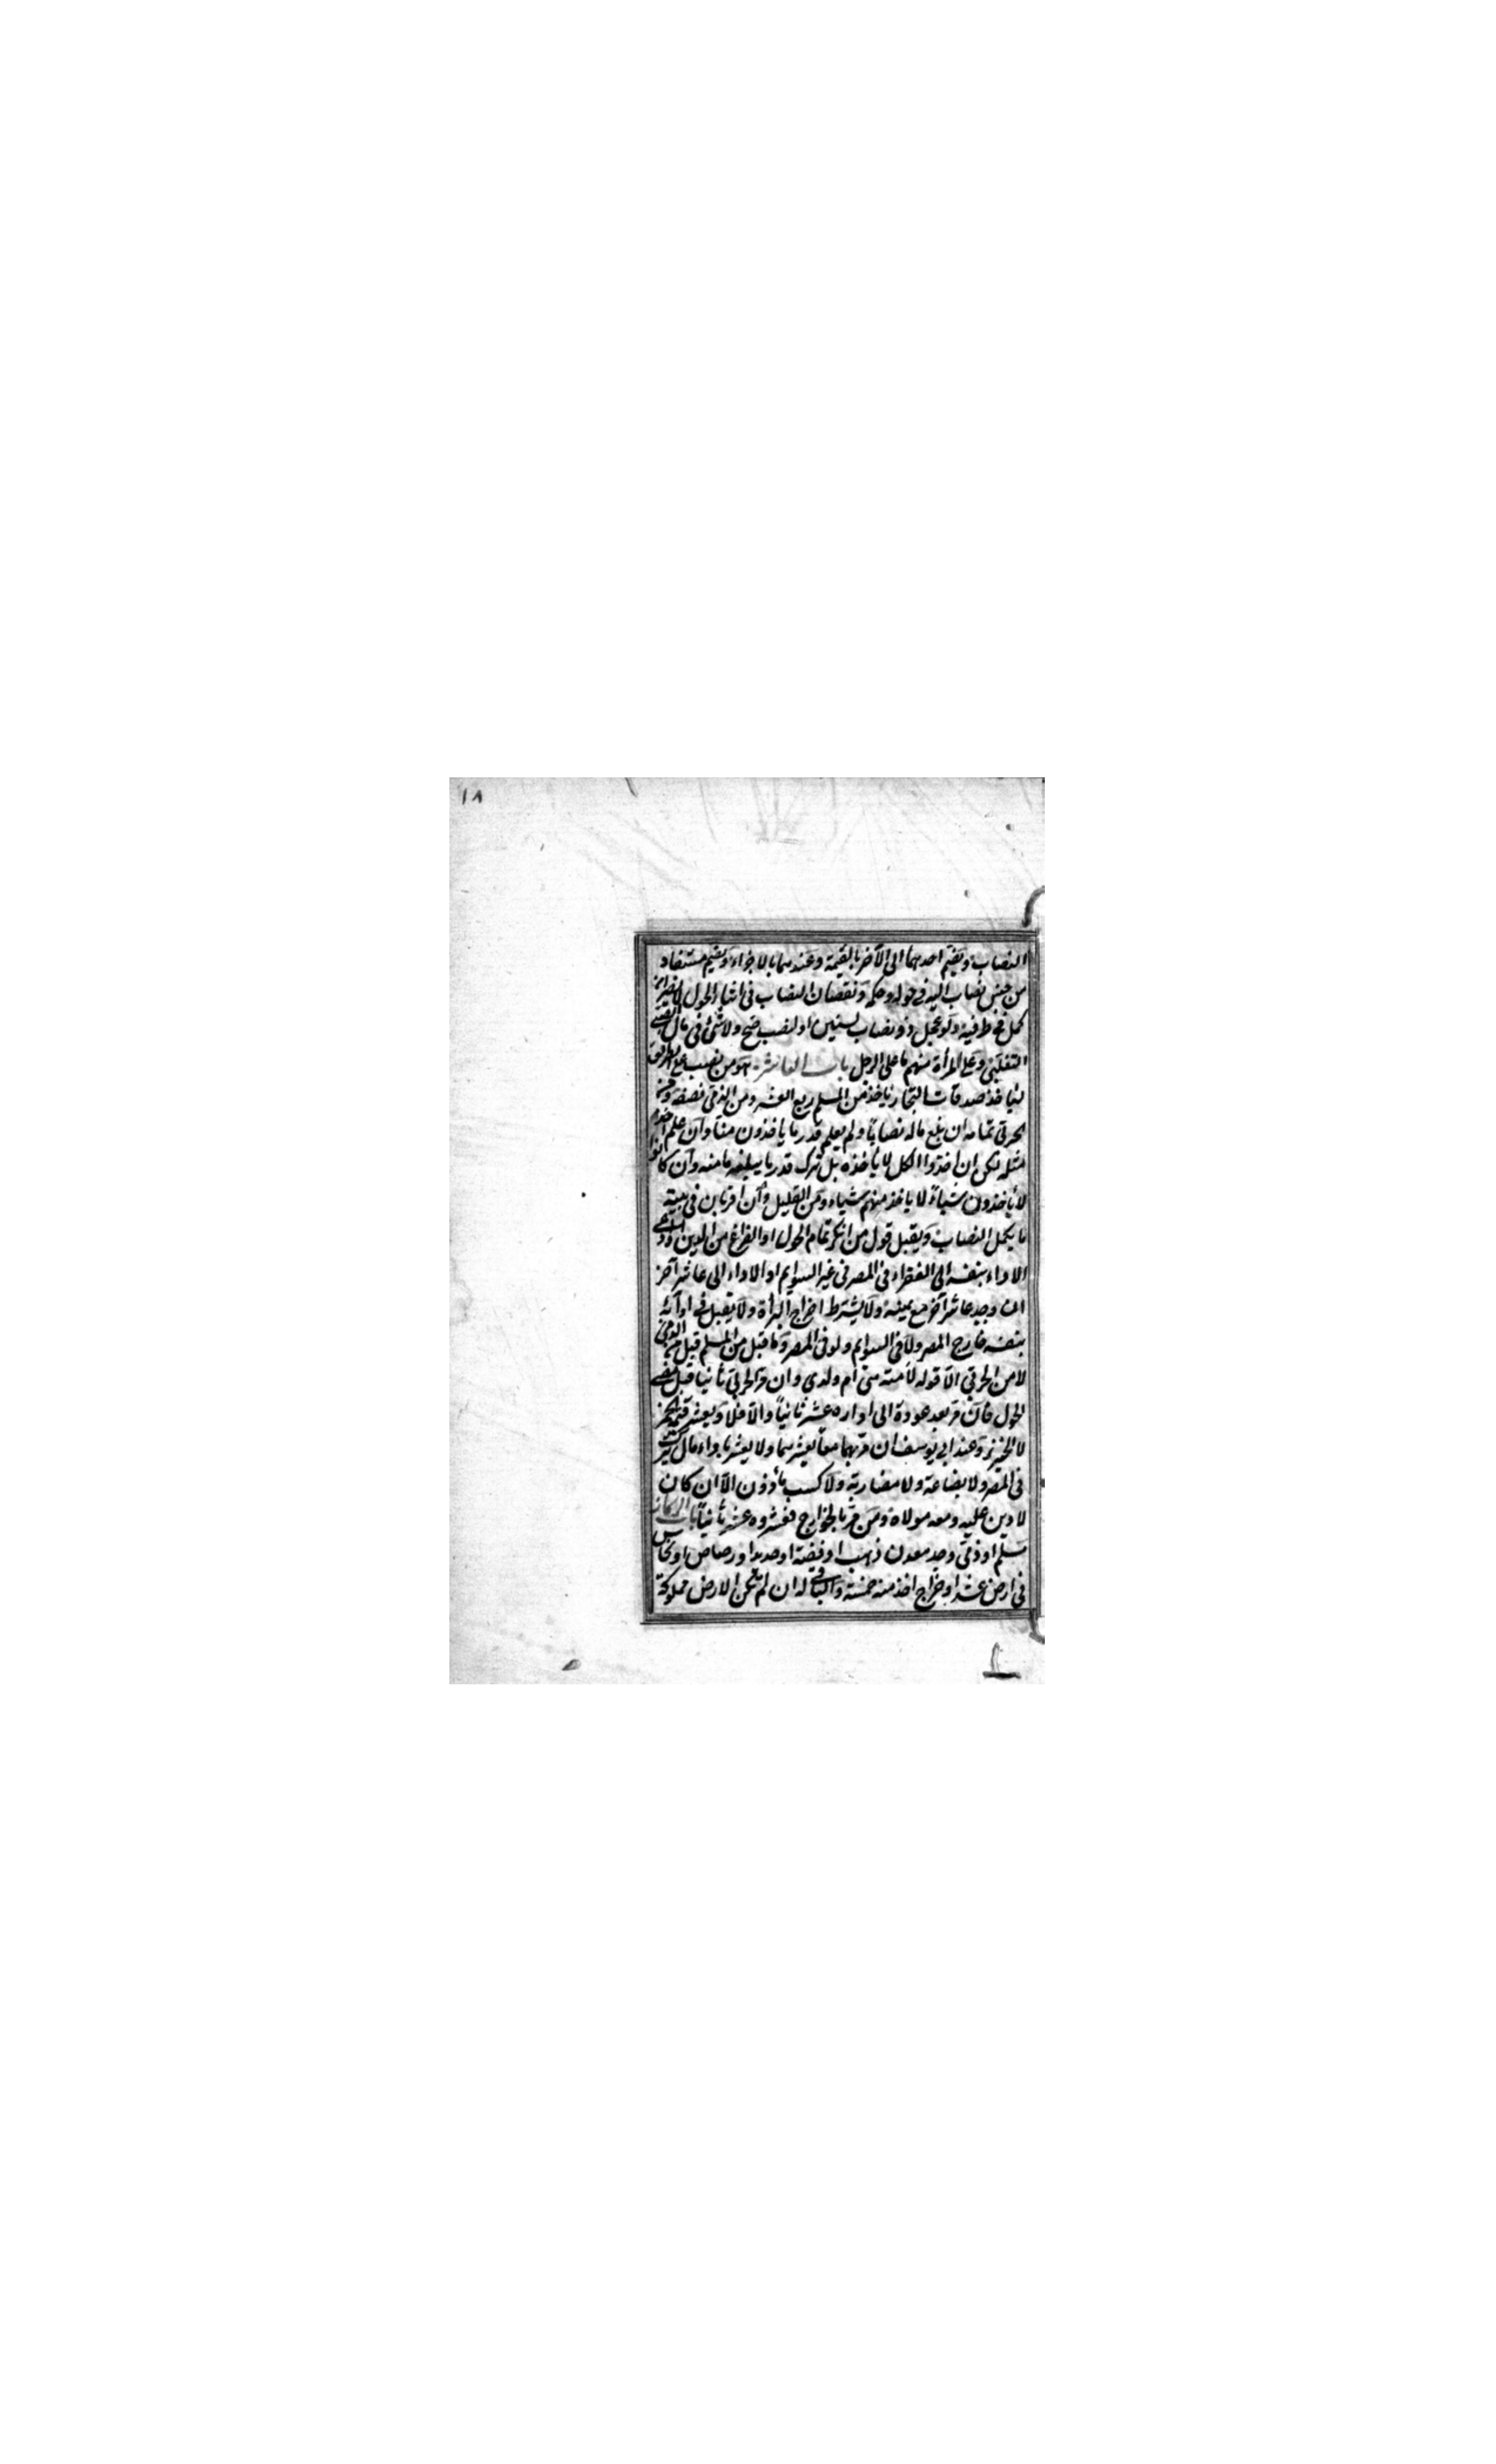 ١٨
النصاب ويضم احدهما الى الآخر بالقيمة وعندهما بالاجزاء ويضم مستفاد
من جنس نصاب اليه فى حوله وحكمه ونقصان النصاب فى اثناء الحول لا يضر ان
كمل فى طرفيه ولو عجل ذو نصاب لسنين او لنصب صح ولا شئ فى مال الصبى
التغلبى وعلى المرأة منهم ما على الرجل باب العاشر هو من نصب على الطريق
ليأخذ صدقات التجار يأخذ من المسلم ربع العشر ومن الذمى نصفه ومن
الحربى تمامه ان بلغ ماله نصابا ولم يعلم قدر ما يأخذون منا وان علم اخذ
مثله لكن ان اخذوا الكل لا يأخذه بل يترك قدر ما يبلغه مامنه وان كانوا
لا يأخذون شيئا لا يأخذ منهم شيئا ومن القليل وان اقر بان فى بيته
ما يكمل النصاب ويقبل قول من انكر تمام الحول او الفراغ من الدين او ادعى
الاداء بنفسه الى الفقراء فى المصر فى غير السوايم او الاداء الى عاشر آخر
ان وجد عاشر آخر مع يمينه ولا يشترط اخراج البرأة ولا يقبل فى ادآئه
بنفسه خارج المصر ولا فى السوايم ولو فى المصر وما قبل من المسلم قبل من الذمى
لا من الحربى الا قوله لامته هى ام ولدى وان مر الحربى ثانيا قبل مضى
الحول فان مر بعد عوده الى داره عشر ثانيا والا فلا ويعشر قيمة الخمر
لا الخنزير وعند ابى يوسف ان مر بهما معا يعشرهما ولا يعشر مال ترك
فى المصر ولا بضاعة ولا مضاربة ولا كسب مأذون الا ان كان
لا دين عليه ومعه مولاه ومن مر بالخوارج فعشروه عشر ثانيا باب الركاز
مسلم او ذمى وجد معدن ذهب او فضة او حديد او رصاص او نحاس
فى ارض عشر او خراج اخذ منه خمسه والباقى له ان لم تكن الارض مملوكة